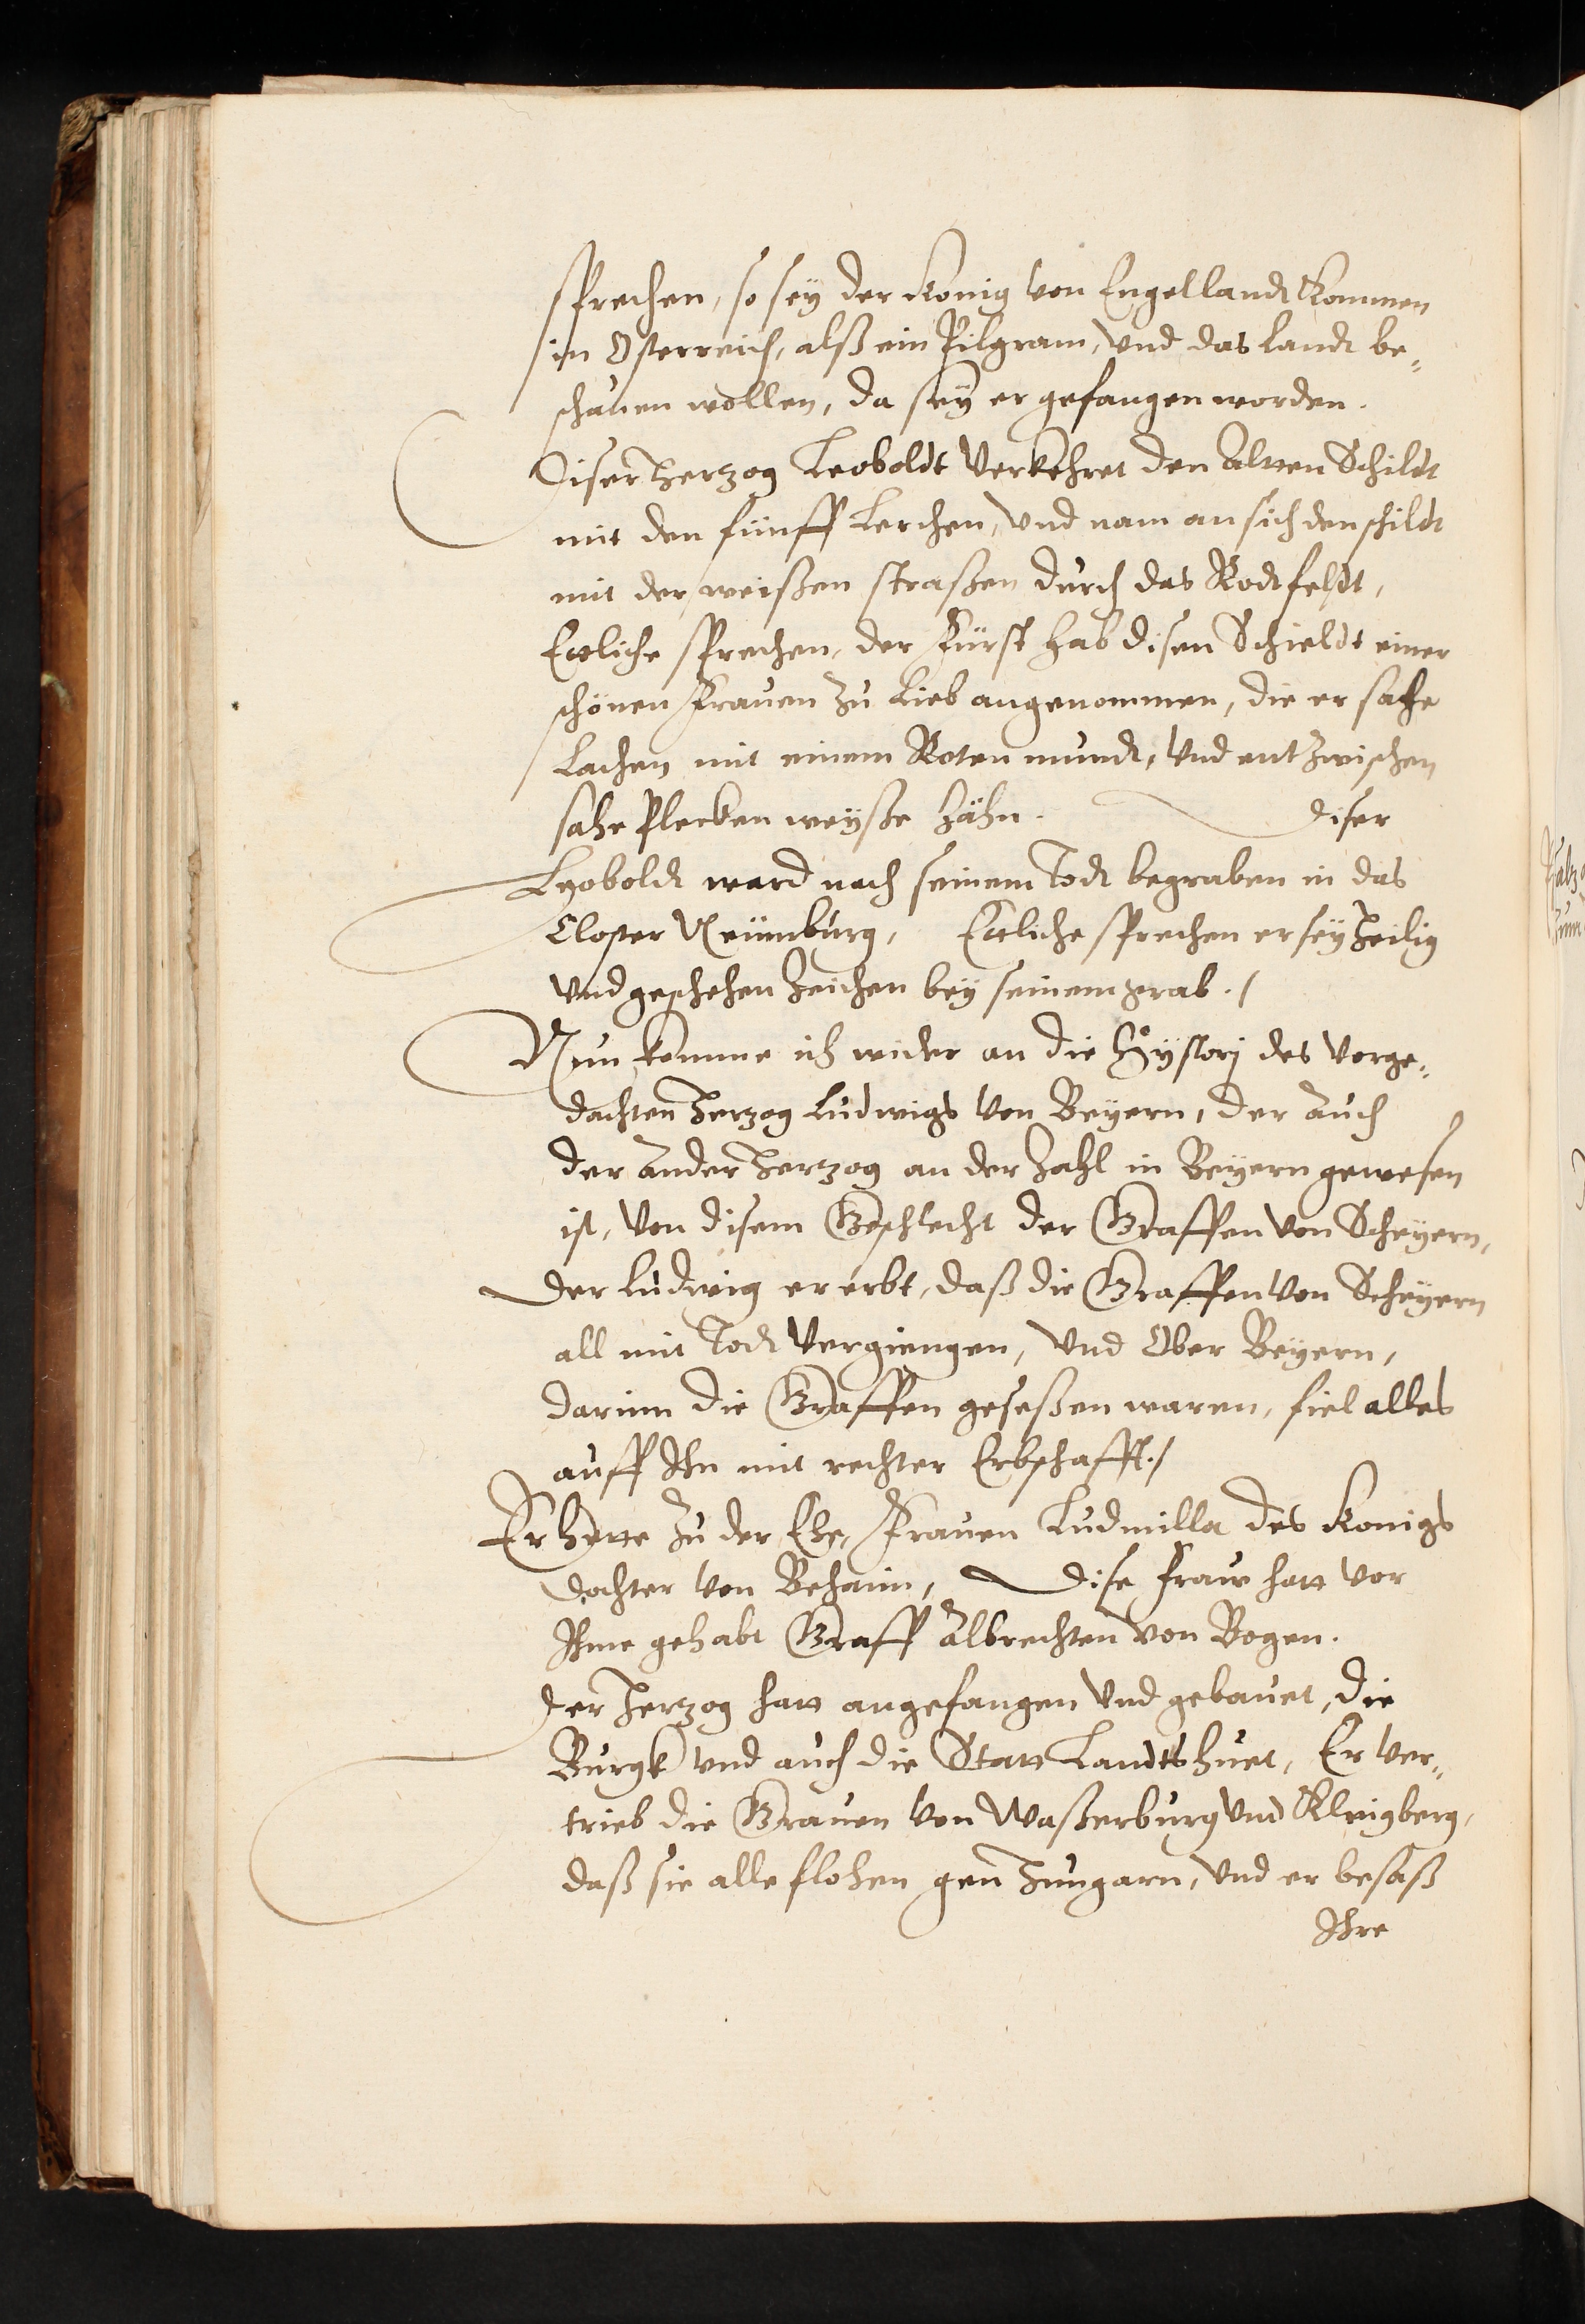 sprechen, so sey der König von Engellandt kommen
in Osterreich, alß ein Pilgram, und das Landt be„
schauen wollen, da sey er gefangen worden.
Diser Hertzog Leoboldt verkehret den alten Schildt
mit den fünff Lerchen, und nam an sich den schildt
mit der weißen straßen durch das Rodtfeldt,
Ettliche sprechen, der Fürst hab disen Schieldt einer
schönen Frauen zu Lieb angenommen, die er sahe
Lachen mit einem Roten mundt, und entzwischen
sahe Plecken weyße Zähn. diser
Leoboldt ward nach seinem Todt begraben in das
Closter Neümburg, Ettliche sprechen er sey heilig
und geschehen Zeichen bey seinem grab./
Nun komme ich wider an die Hystorj des vorge„
dachten Hertzog Ludwigs von Beyern, der auch
der ander Hertzog an der Zahl in Beyern gewesen
ist, von disem Geschlecht der Graffen von Scheyern,
der Ludwig ererbt, daß die Graffen von Scheyern
all mit Todt vergiengen, und Ober Beyern,
darinn die Graffen geseßen waren, fiel alles
auff Ihn mit rechter Erbschafft./
Er hette zu der Ehe, Frauen Ludmilla des Konigs
dochter von Behaim, dise Fraw hatt vor
Ihme gehabt Graff Albrechten von Bogen.
Der Hertzog hatt angefangen und gebauet, die
Burgk und auch die Statt Landtshuet, Er ver„
trieb die Grauen von Waßerburg und Kleigberg,
daß sie alle flohen gen Hungarn, und er besaß
Ihre